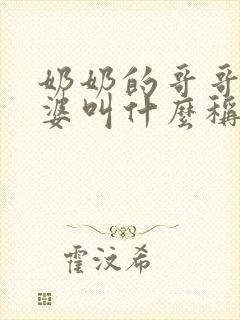 奶奶的哥哥
婆叫什麼稱
霍汶希